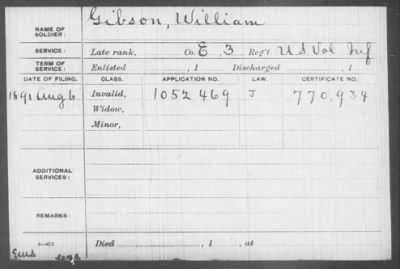 NAME OF SOLDIER: Gibson, William
SERVICE: Late rank, Co. E, 3 Reg't U S Vol Inf
TERM OF SERVICE: Enlisted , 1 Discharged , 1
DATE OF FILING. CLASS. APPLICATION NO. LAW. CERTIFICATE NO.
1891 Aug 6 Invalid, 1052 469 J 770.934
Widow,
Minor,
ADDITIONAL SERVICES:
REMARKS:
Died , 1 , at